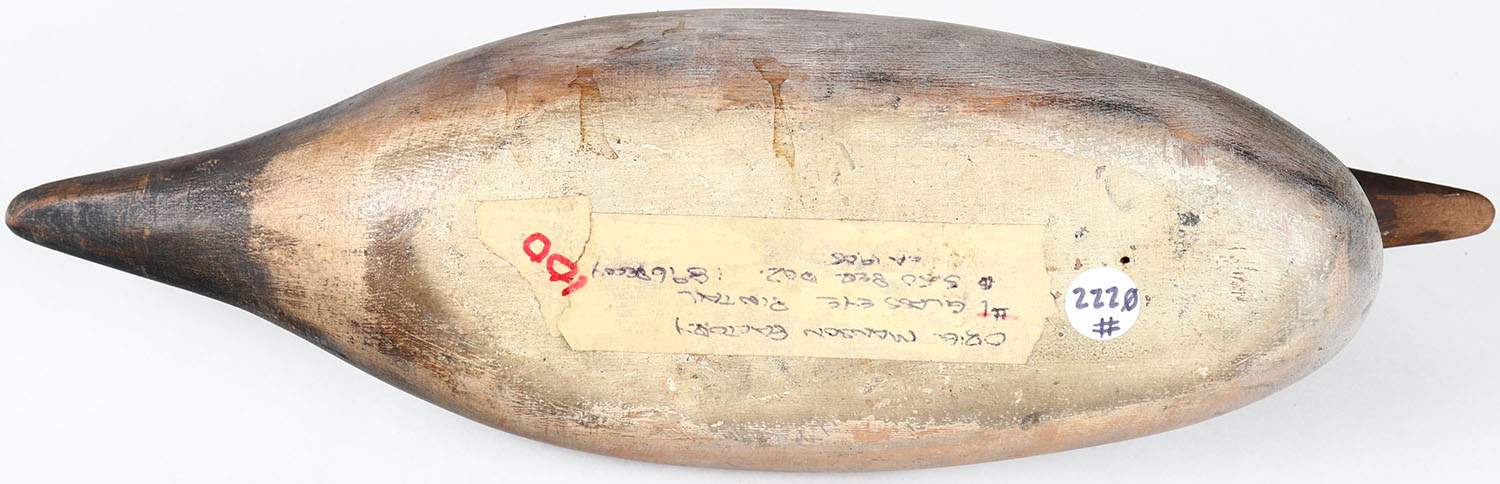 ORIG. FACTORY
#1 GLASS EYE PINTAIL
$ 5.50 PER DOZ.
CA 1905
100
#
0222